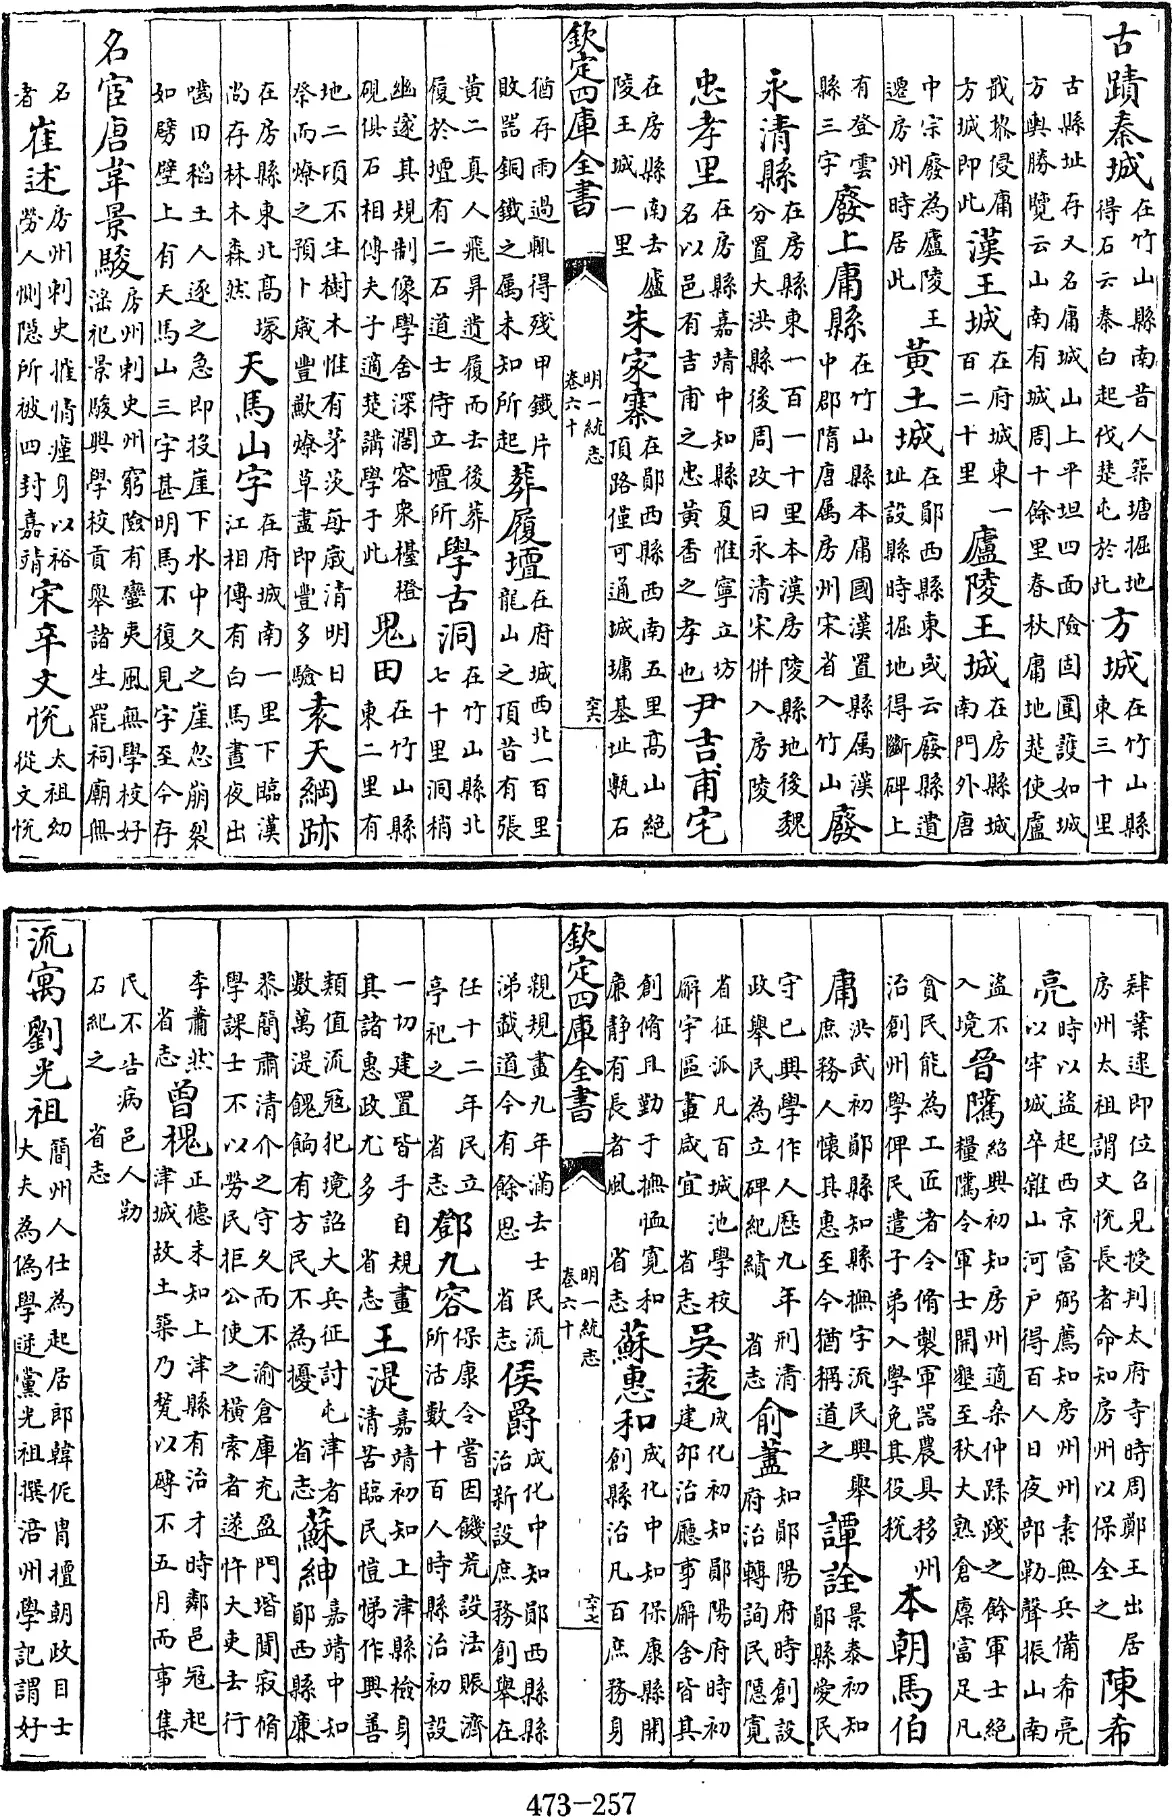 古蹟秦城在竹山縣南昔人築塘掘地得石云秦白起伐楚屯於此方城在竹山縣東三十里
古縣址存又名庸城山上平坦四面險固圓護如城方輿勝覽云山南有城周十餘里春秋庸地楚使廬
戢黎侵庸方城即此漢王城在府城東一百二十里廬陵王城在房縣城南門外唐
中宗廢為廬陵王遷房州時居此黄土城在鄖西縣東或云廢縣遺址設縣時掘地得斷碑上
有登雲縣三字廢上庸縣在竹山縣本庸國漢置縣属漢中郡隋唐属房州宋省入竹山廢
永清縣在房縣東一百一十里本漢房陵縣地後魏分置大洪縣後周改曰永清宋併入房陵
忠孝里在房縣嘉靖中知縣夏惟寧立坊名以邑有吉甫之忠黄香之孝也尹吉甫宅
在房縣南去廬陵王城一里朱家寨在鄖西縣西南五里高山絶頂路僅可通城墉基址甎石
欽定四庫全書 明一統志卷六十 六十六
猶存雨過輒得殘甲鐵片敗噐銅鐵之属未知所起葬履壇在府城西北一百里龍山之頂昔有張
黄二真人飛昇遺履而去後葬履於壇有二石道士侍立壇所學古洞在竹山縣北七十里洞稍
幽邃其規制像學舍深濶容衆檯橙硯俱石相傳夫子適楚講學于此鬼田在竹山縣東二里有
地二頃不生樹木惟有茅茨每歲清明日祭而燎之預卜歲豐歉燎草盡即豐多驗袁天綱跡
在房縣東北高塚尚存林木森然天馬山字在府城南一里下臨漢江相傳有白馬晝夜出
嚙田稻土人逐之急即投崖下水中久之崖忽崩裂如劈壁上有天馬山三字甚明馬不復見字至今存
名宦唐韋景駿房州刺史州窮險有蠻夷風無學校好滛祀景駿興學校貢舉諸生罷祠廟無
名者崔述房州刺史惟情瘽身以裕勞人惻隠所被四封嘉靖宋辛文悅太祖幼從文悅
肄業逮即位召見授判太府寺時周鄭王出居房州太祖謂文悅長者命知房州以保全之陳希
亮時以盗起西京富弼薦知房州州素無兵備希亮以牢城卒雜山河户得百人日夜部勒聲振山南
盗不入境晉隲紹興初知房州適桑仲蹂踐之餘軍士絶糧隲令軍士開墾至秋大熟倉廩富足凡
貧民能為工匠者令脩製軍噐農具移州治創州學俾民遣子弟入學免其役税本朝馬伯
庸洪武初鄖縣知縣撫字流民興舉庶務人懷其惠至今猶稱道之譚詮景泰初知鄖縣愛民
守已興學作人歷九年刑清政舉民為立碑紀績 省志俞藎知鄖陽府時創設府治轉詢民隠寛
省征派凡百城池學校廨宇區畫咸宜 省志吳遠成化初知鄖陽府時初建郡治廳事廨舍皆其
創脩且勤于撫恤寛和㢘静有長者風 省志蘇惠和成化中知保康縣開創縣治凡百庶務身
欽定四庫全書 明一統志卷六十 六十七
親規畫九年滿去士民流涕載道今有餘思 省志侯爵成化中知鄖西縣縣治新設庶務創舉在
任十二年民立亭祀之 省志鄧九容保康令當因饑荒設法賑濟所活數十百人時縣治初設
一切建置皆手自規畫其諸惠政尤多 省志王湜嘉靖初知上津縣檢身清苦臨民愷悌作興善
類值流冦犯境詔大兵征討屯津者數萬湜餽餉有方民不為擾 省志蘇紳嘉靖中知鄖西縣㢘
恭簡肅清介之守久而不渝倉庫充盈門堦閒寂脩學課士不以勞民拒公使之横索者遂忤大吏去行
李蕭然省志曾槐正德末知上津縣有治才時鄰邑冦起津城故土築乃甃以磚不五月而事集
民不告病邑人勒石紀之 省志
流寓劉光祖簡州人仕為起居郎韓侂胄擅朝政目士大夫為偽學逆黨光祖撰涪州學記謂好
473-257